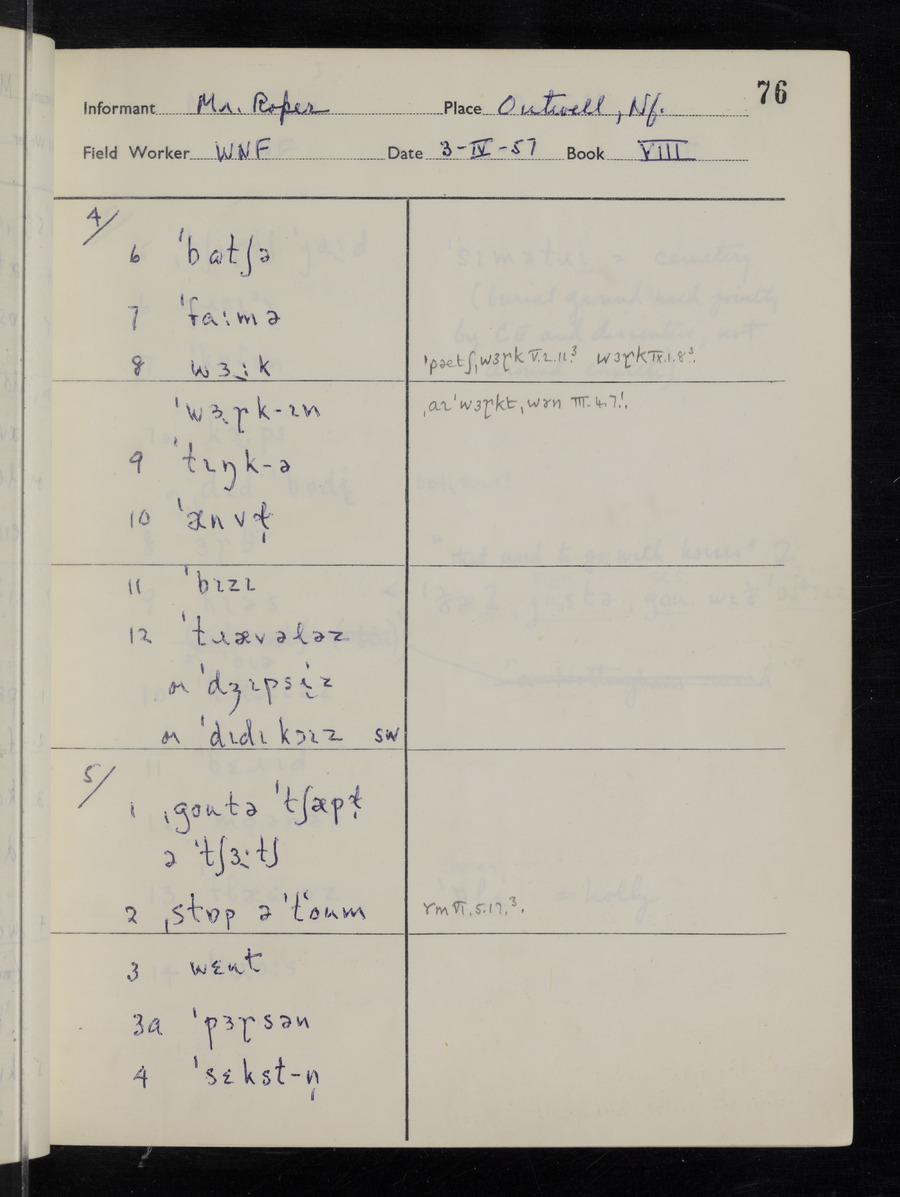 76
Informant Mr. Roper Place Outwell, Nf.
Field Worker WNF Date 3-IV-57 Book VIII
4/
6 ˈbatʃə
7 ˈfa:mə
8 wɜ:k ˈpəetʃˌwɜɽk V.2.11³ wɜɽk IX.1.8³.
ˈwɜɽk-ɪn
9 ˈtɪŋk-ə
10 ˈænvɫ̩
11 ˈbɪzɪ
12 ˈtɹævələz
or ˈdʒɪpsiz
or ˈdɪdɪkɔɪz sw
5/
1 ˌgoutə ˈtʃæpɫ̩
ə ˈtʃɜ:tʃ
2 ˌstɒp əˈtʻoum
3 wɛnt
3a ˈpɜɽsən
4 ˈsɛkst-n̩